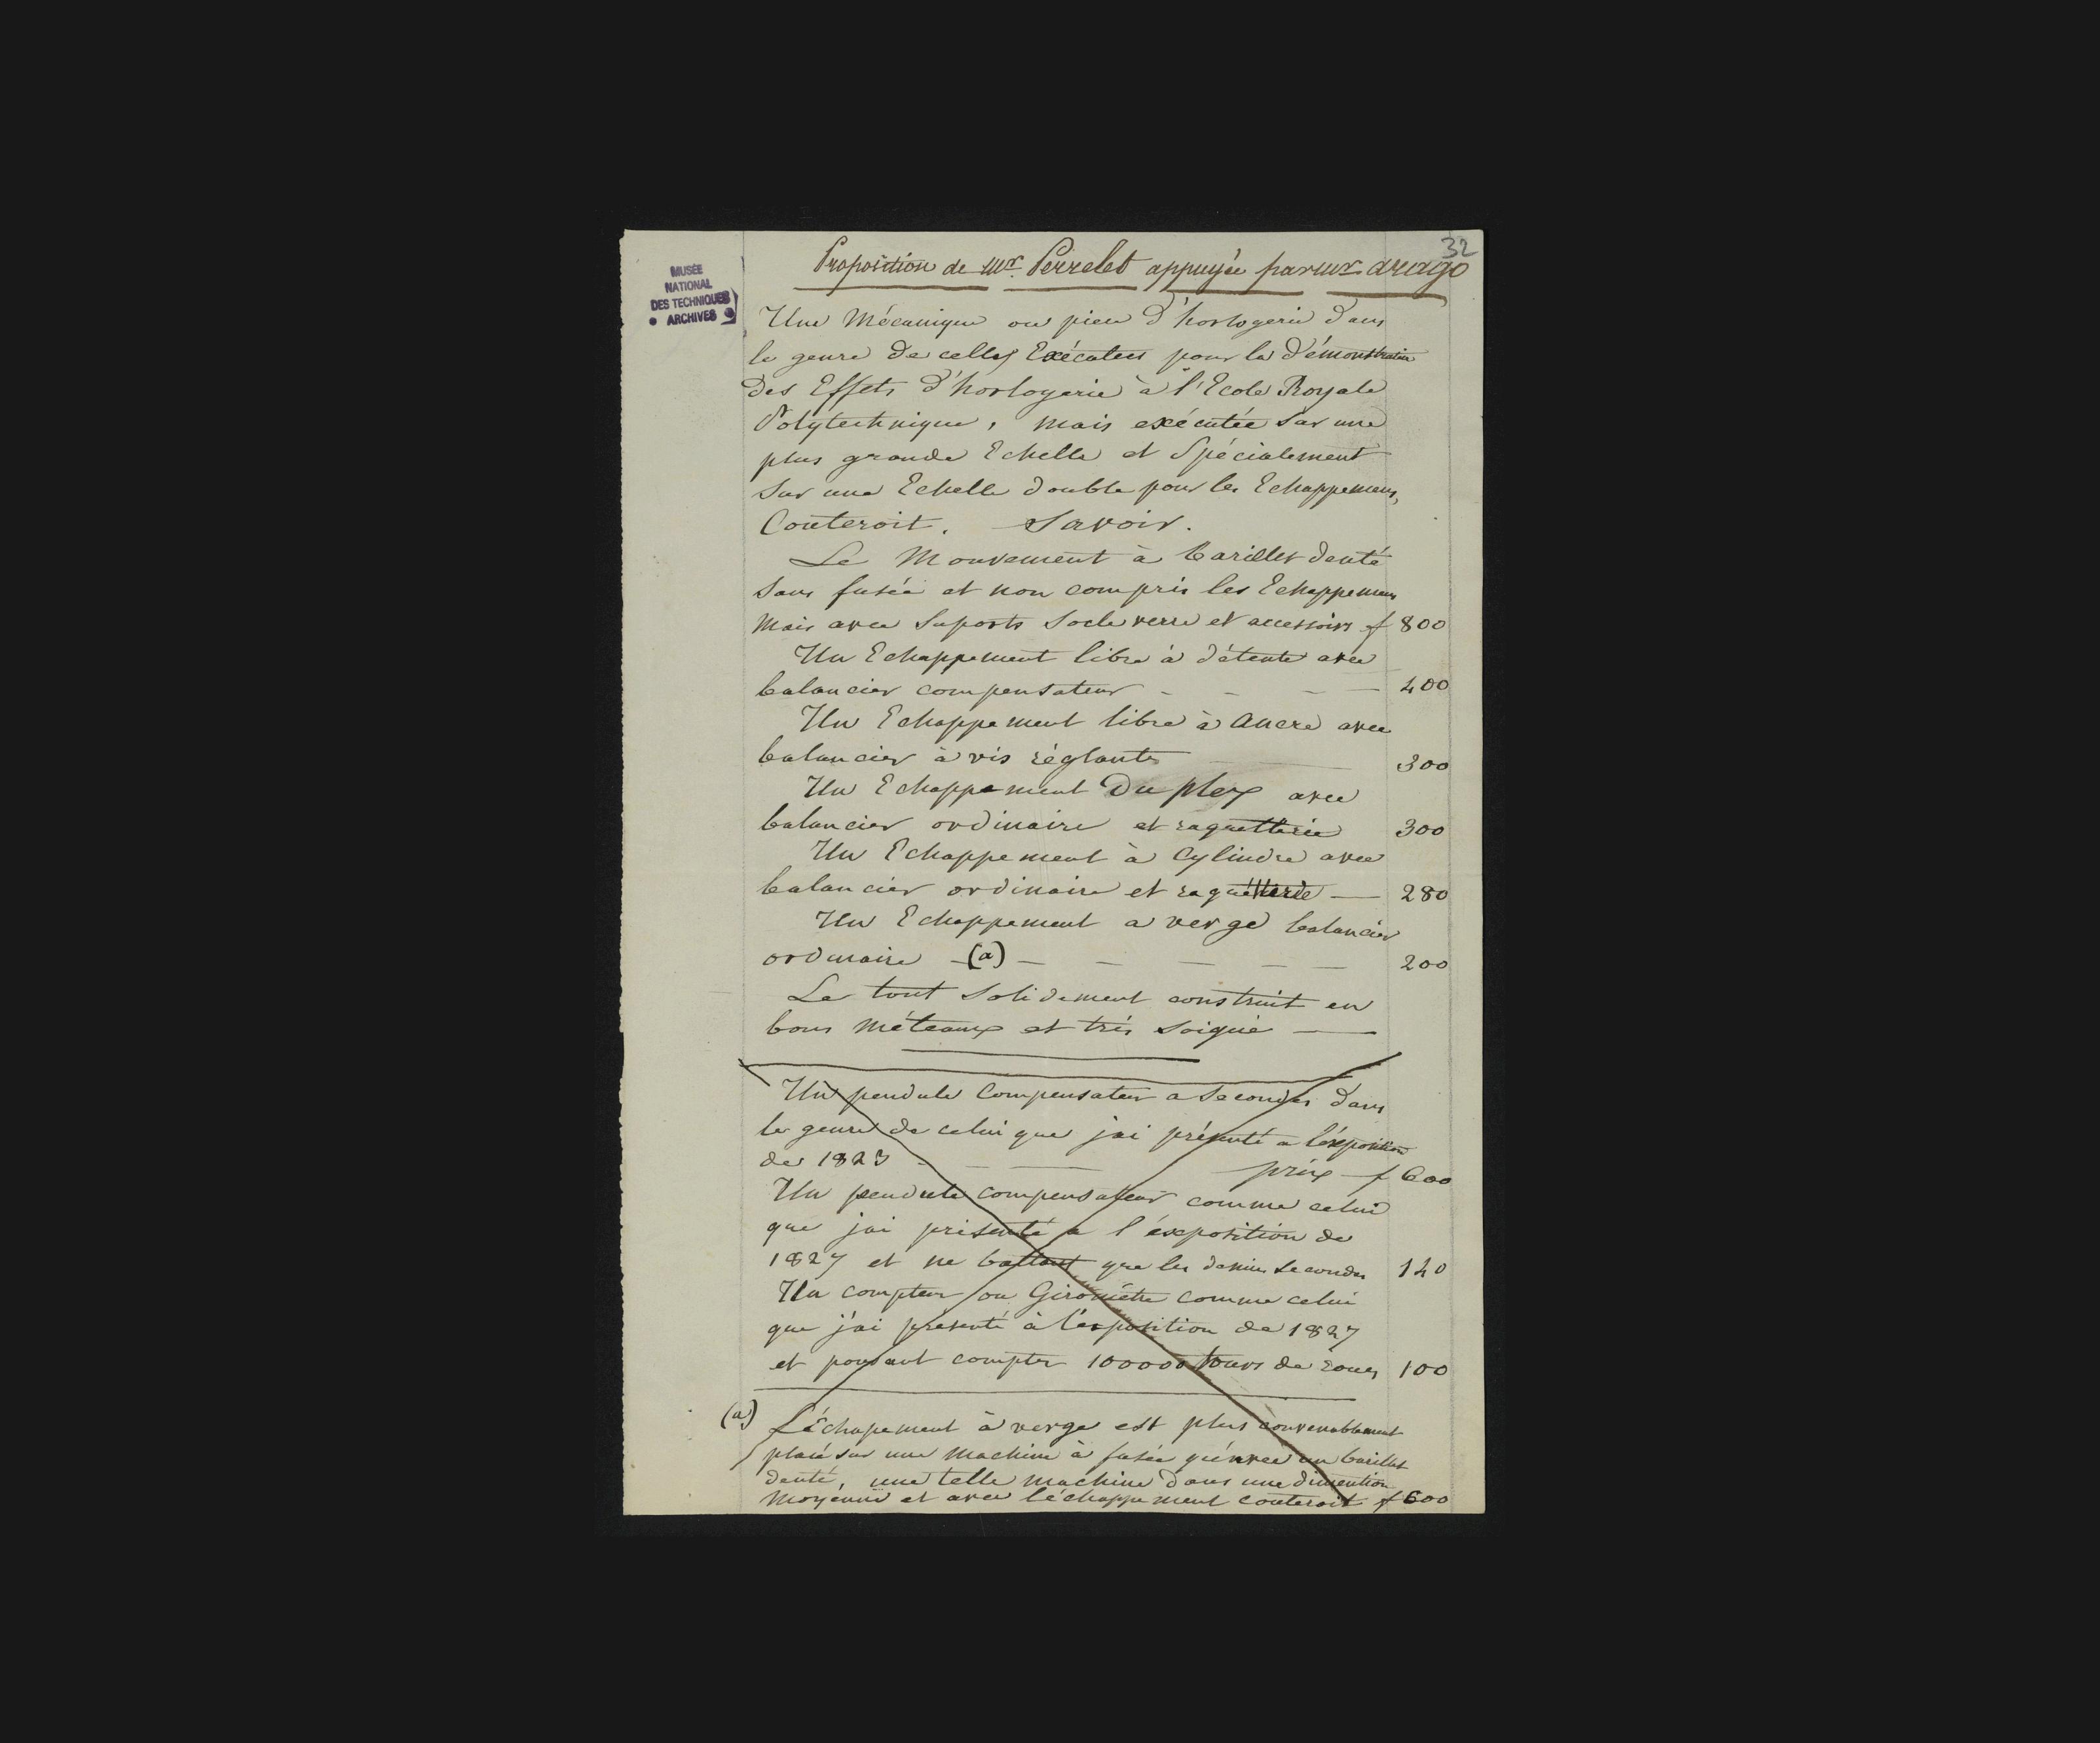 32
Proposition de Mr. Perrelet appuyée par Mr arago
MUSÉE
NATIONAL
DES TECHNIQUES
ARCHIVES
Une Mécanique ou piece d'horlogerie dans
le genre de celles Exécutees pour la Démonstration
des Effets d'horlogerie à l'Ecole Royale
Polytechnique, mais exécutée sur une
plus grande Echelle et Spécialement
sur une Echelle double pour les Echappemens,
Couteroit. Savoir.
Le Mouvement à barillet denté
sans fusée et non compris les Echappemens
Mais avec suports socle verre et accessoirs f 800
Un Echappement libre à détente avec
balancier compensateur - - - - 400
Un Echappement libre à Ancre avec
balancier à vis réglantes 300
Un Echappement Duplex avec
balancier ordinaire et raquetterie 300
Un Echappement à Cylindre avec
balancier ordinaire et raquetterie — 280
Un Echappement a verge balancier
ordinaire - (a) - - - - - 200
Le tout solidement construit en
bons Méteaux et très soigné —
Un pendule Compensateur a Secondes dans
le genre de celui que jai présenté a l'éxposition
de 1823 - - — prix - f 600
Un pendule compensateur comme celui
que jai présenté a l'éxposition de
1827 et ne battant que les demies secondes 120
Un compteur ou Giromètre comme celui
que j'ai présenté à l'exposition de 1827
et pouvant compter 100000 tours de roues 100
(a) L'Echapement à verge est plus convenablement
placé sur une machine à fusée qu'avec un barillet
denté, une telle machine dans une dimention
moyénne et avec l'échappement couteroit f 600